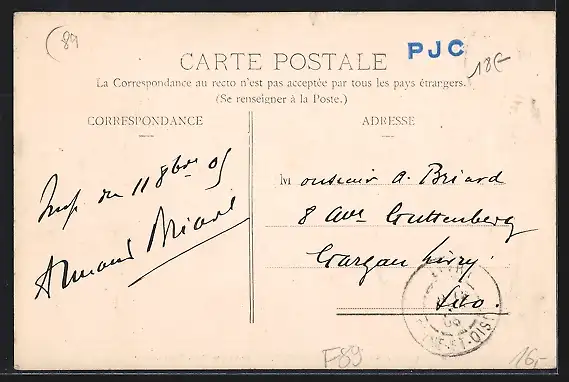 (89
CARTE POSTALE
PJC
18€
La Correspondance au recto n'est pas acceptée par tous les pays étrangers.
(Se renseigner à la Poste.)
CORRESPONDANCE
ADRESSE
du 11 8bre 05
Armand Briard
Monsieur A. Briard
8 Ave Guttenberg
Gargan Livry
S&O.
LIVRY
SEINE-ET-OISE
F89
16,-